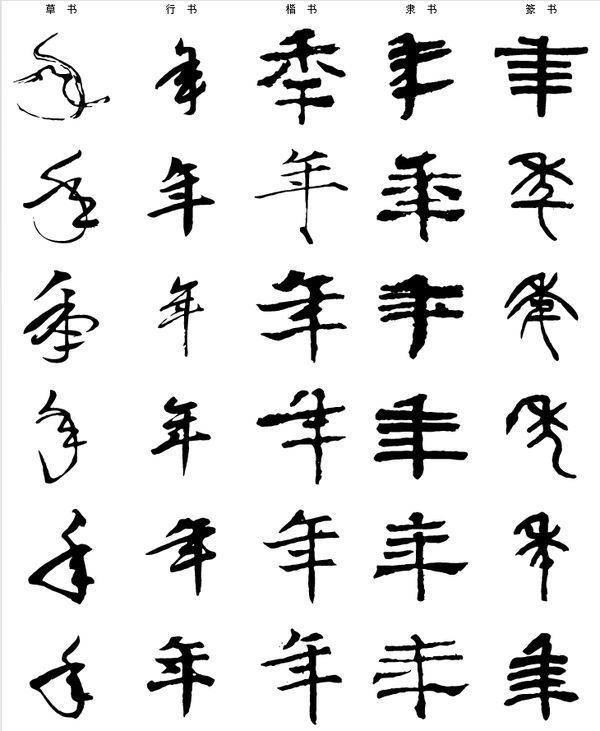 草书 行书 楷书 隶书 篆书
年 年 年 年 年
年 年 年 年 年
年 年 年 年 年
年 年 年 年 年
年 年 年 年 年
年 年 年 年 年